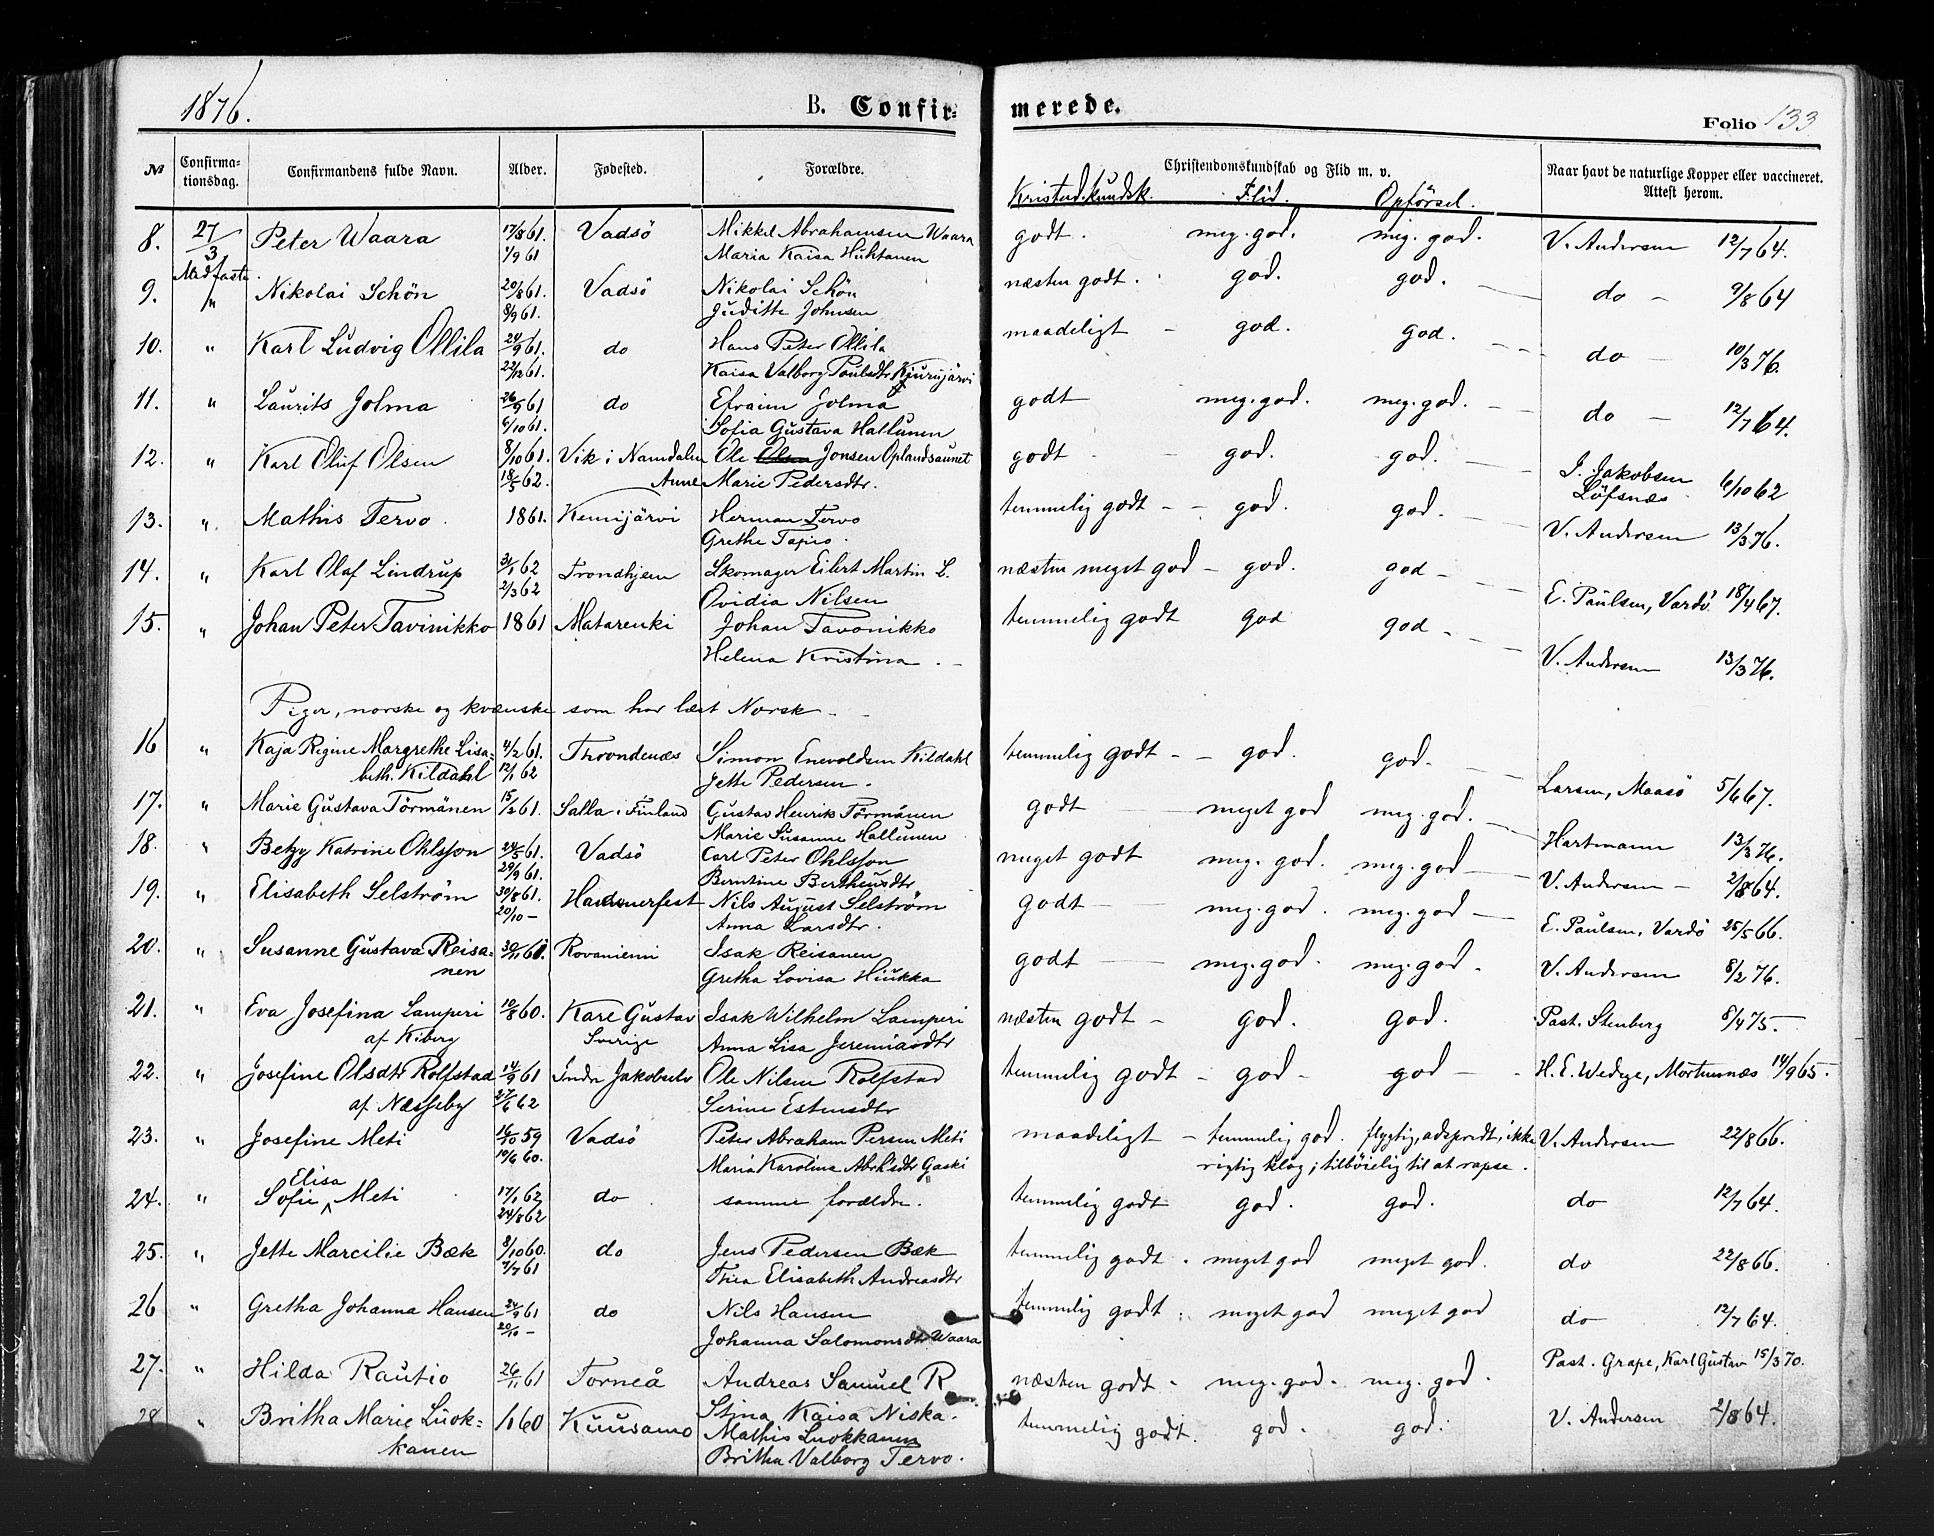 1876.
B. Confirmerede.
Folio 133
№ Confirmationsdag. Confirmandens fulde Navn. Alder. Fødested. Forældre. Christendomskundskab og Flid m. v. Naar havt de naturlige Kopper eller vaccineret. Attest herom.
Kristend.kundsk. Flid. Opførsel.
8. 27/3 Peter Waara 17/8 61. Vadsö Mikkel Abrahamsen Waara godt. meg. god. meg. god. V. Andersen 12/7 64.
Midfaste 1/9 61 Maria Kaisa Huhtanen
9. " Nikolai Schön 20/8 61. Vadsö Nikolai Schön næsten godt. god. god. do 9/8 64
8/9 61. Juditte Johnsen
10. " Karl Ludvig Ollila 24/9 61. do Hans Peter Ollila maadeligt god. god. do 10/3 76.
22/12 61. Kaisa Valborg Paulsdtr Kjurujärvi
11. " Laurits Jolma 26/9 61 do Efraim Jolma godt meg. god. meg. god. do 12/7 64.
6/10 61. Sofia Gustava Hallunen
12. " Karl Oluf Olsen 8/10 61. Vik i Namdalen Ole Olsen Jonsen Oplandsaunet godt god. god. J. Jakobsen
18/5 62. Anne Marie Pedersdtr. Löfsnæs 6/10 62
13. " Mathis Tervo. 1861. Kemijärvi Herman Tervo temmelig godt god. god. V. Andersen 13/3 76.
Grethe Tapio.
14. " Karl Olaf Lindrup 31/1 62 Trondhjem Skomager Eilert Martin L. næsten meget god god. god E. Paulsen, Vardö 18/4 67.
2/3 62 Ovidia Nilsen
15. " Johan Peter Tavinikko 1861 Matarenki Johan Tavonikko temmelig godt god god V. Andersen 13/3 76.
Helena Kristina
Piger, norske og kvænske som har læst Norsk
16 " Kaja Regine Margrethe Lisa- 4/2 61. Throndenæs Simon Enevoldsen Kildahl temmelig godt god. god. Larsen, Maasö 5/6 67.
beth. Kildahl 12/1 62 Jette Pedersen.
17. " Marie Gustava Törmänen 15/2 61. Salla i Finland Gustav Henrik Törmänen godt meget god meg. god. Hartmann 13/3 76.
Marie Susanne Hallunen
18. " Betzy Katrine Ohlsson 24/5 61. Vadsö Carl Peter Ohlsson meget godt meg. god. meg. god V. Andersen 2/8 64.
29/9 61. Berntine Bertheusdtr
19. " Elisabeth Selström 30/8 61. Hammerfest Nils August Selström godt meg. god. meg. god E. Paulsen, Vardö 25/5 66.
20/10 – Anna Larsdtr.
20. " Susanne Gustava Reisa- 30/11 60. Rovaniemi Isak Reisanen godt meg. god. meg. god. V. Andersen 8/2 76.
nen Gretha Lovisa Hiukka
21. " Eva Josefina Lamperi 10/8 60. Karl Gustav Isak Wilhelm Lamperi næsten godt god. god. Past. Stenberg 8/4 75.
af Kiberg Sverige Anna Lisa Jeremiasdtr
22. " Josefine Olsdtr Rolfstad 14/9 61 Indre Jakobselv Ole Nilsen Rolfstad temmelig godt god god H. E. Wedege, Mortensnæs 14/9 65.
af Næsseby 27/6 62 Serine Estensdtr
23. " Josefine Meti 16/10 59 Vadsö Peter Abraham Persen Meti maadeligt temmelig god. flygtig, adspredt, ikke V. Andersen 22/8 66.
10/6 60. Maria Karolina Abrh'sdtr Gaski rigtig klog; tilbøielig til at rapse.
24. " Sofie Elisa Meti 17/1 62 do samme forældre. temmelig godt god. god. do 12/7 64.
24/8 62
25. " Jette Marcilie Bæk 8/10 60. do Jens Pedersen Bæk temmelig godt meget god meget god. do 22/8 66.
7/7 61 Trea Elisabeth Andreasdtr
26 " Gretha Johanna Hansen 24/9 61 do Nils Hansen temmelig godt meget god meget god do 12/7 64.
20/10 – Johanna Salomonsdtr Waara
27. " Hilda Rautio 26/11 61 Torneå Andreas Samuel R næsten godt meg. god. meg. god. Past. Grape, Karl Gustav 15/3 70.
Stina Kaisa Niska.
28 " Britha Marie Luok- 1/1 60 Kuusamo Mathis Luokkanen temmelig godt. god. god. V. Andersen 2/8 64.
kanen Britha Valborg Tervo.